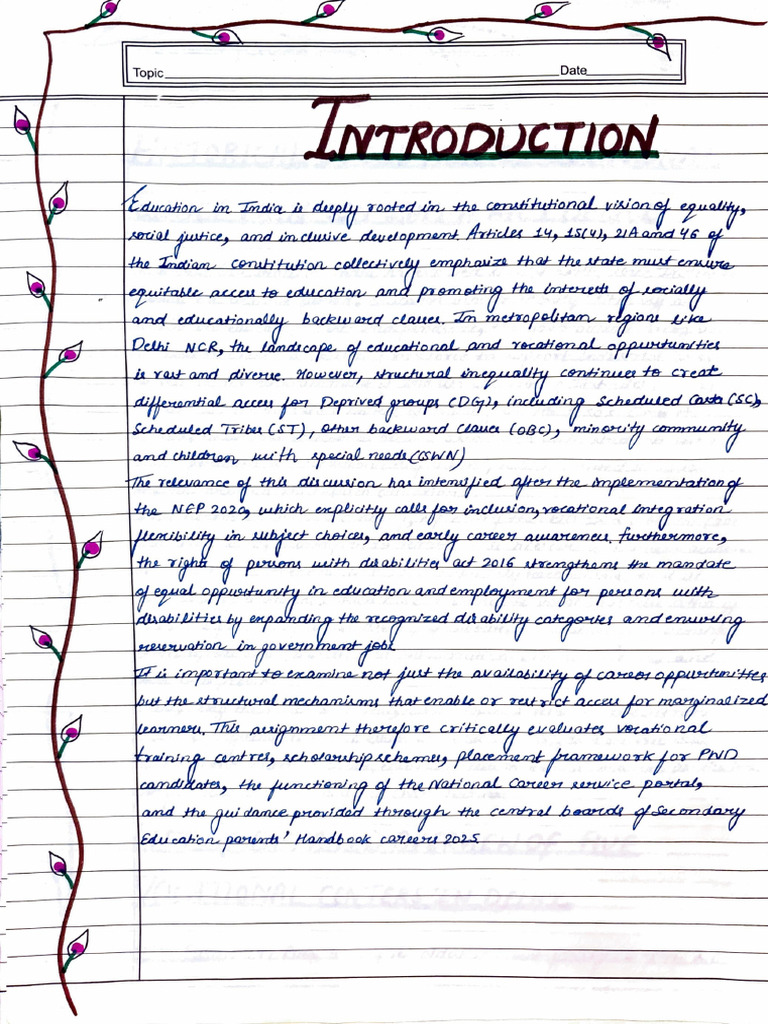 Topic Date
INTRODUCTION
Education in India is deeply rooted in the constitutional vision of equality,
social justice, and inclusive development. Articles 14, 15(4), 21A and 46 of
the Indian constitution collectively emphasize that the state must ensure
equitable access to education and promoting the interests of socially
and educationally backward classes. In metropolitan regions like
Delhi NCR, the landscape of educational and vocational oppurtunities
is vast and diverse. However, structural inequality continues to create
differential access for Deprived groups (DG), including Scheduled Caste (SC),
Scheduled Tribes (ST), other backward classes (OBC), minority community
and children with special needs (CSWN)
The relevance of this discussion has intensified after the implementation of
the NEP 2020, which explicitly calls for inclusion, vocational integration
flexibility in subject choices, and early career awareness. furthermore,
the rights of persons with disabilities act 2016 strengthens the mandate
of equal oppurtunity in education and employment for persons with
disabilities by expanding the recognized disability categories and ensuring
reservation in government jobs.
It is important to examine not just the availability of career oppurtunities
but the structural mechanisms that enable or restrict access for marginalized
learners. This assignment therefore critically evaluates vocational
training centres, scholarship schemes, placement framework for PWD
candidates, the functioning of the National Career service portal,
and the guidance provided through the central boards of Secondary
Education parents' Handbook careers 2025.